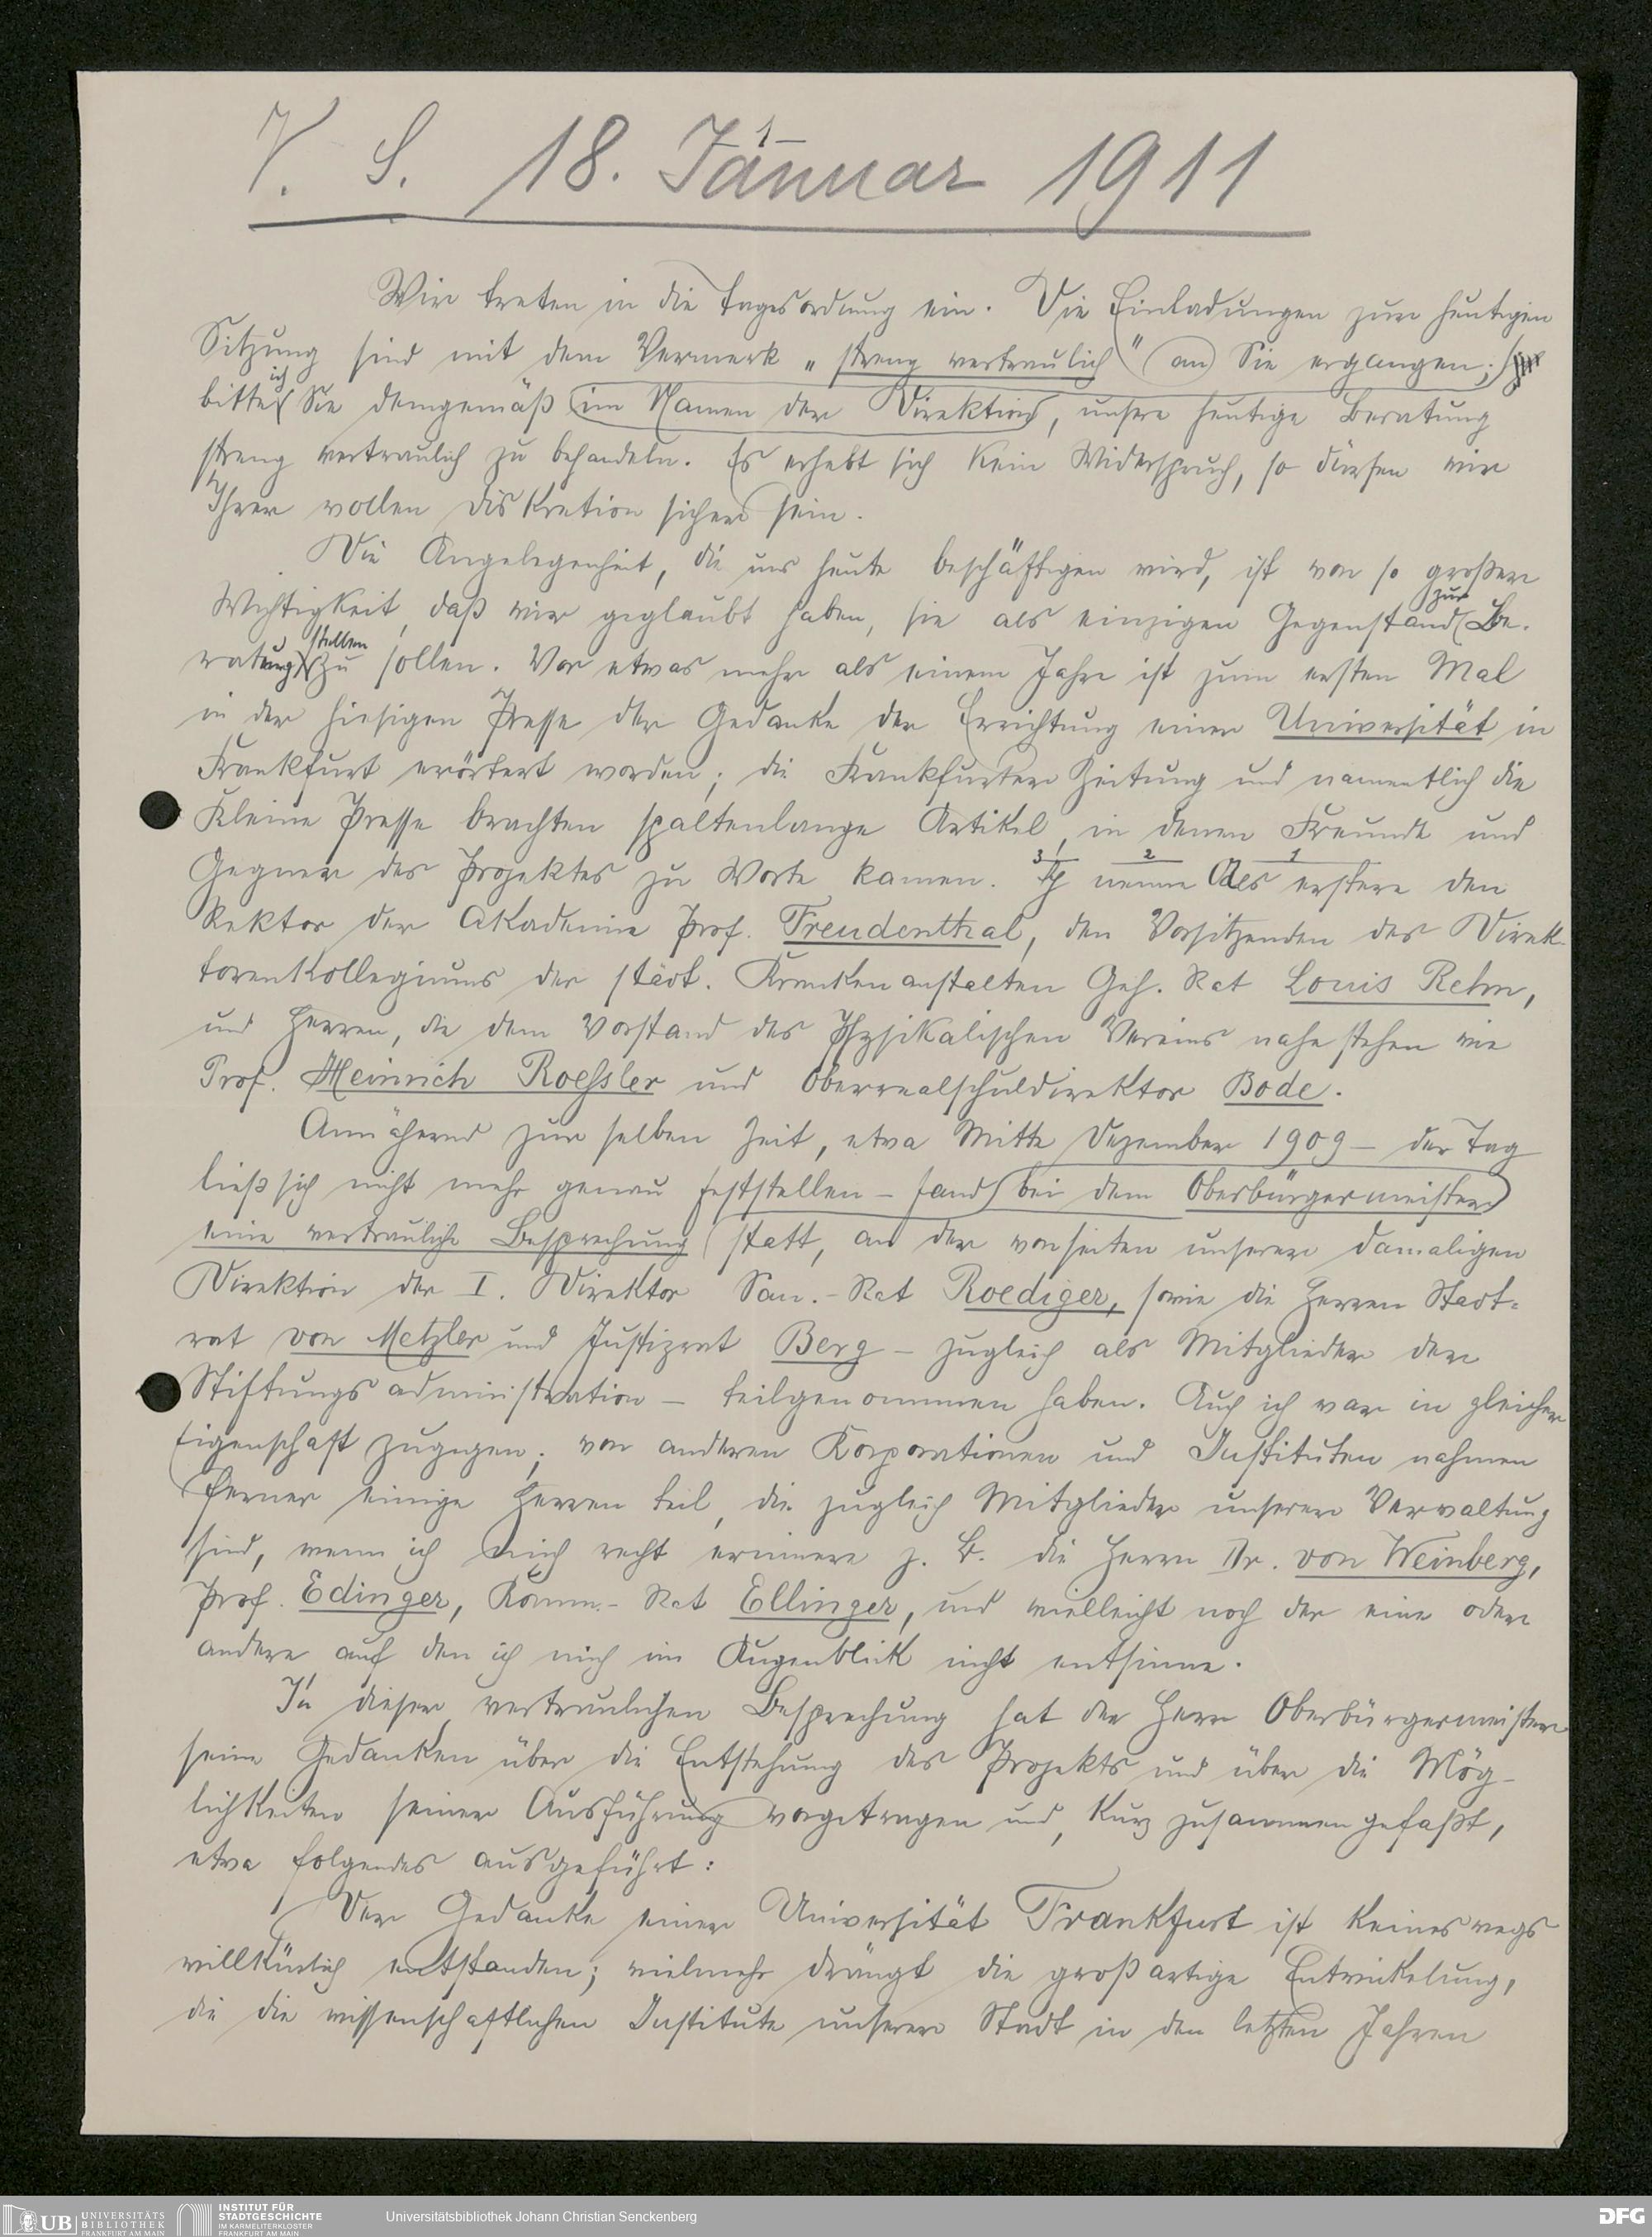 V. S. 18. Januar 1911
Wir treten in die Tagesordnung ein. Die Einladungen zur heutigen
Sitzung sind mit dem Vermerk „streng vertraulich" an Sie ergangen;
bitte ich Sie demgemäß im Namen der Direktion, unsere heutige Beratung
streng vertraulich zu behandeln. Es erhebt sich kein Widerspruch, so dürfen wir
Ihrer vollen Diskretion sicher sein.
Die Angelegenheit, die uns heute beschäftigen wird, ist von so großer
Wichtigkeit, daß wir geglaubt haben, sie als einzigen Gegenstand zur Be-
ratung stellen zu sollen. Vor etwas mehr als einem Jahre ist zum ersten Mal
in der hiesigen Presse der Gedanke der Errichtung einer Universität in
Frankfurt erörtert worden; die Frankfurter Zeitung und namentlich die
Kleine Presse brachten spaltenlange Artikel, in denen Freunde und
Gegner des Projektes zu Worte kamen. Ich nenne als erstere den
3 2 1
Rektor der Akademie Prof. Freudenthal, den Vorsitzenden des Direk-
torenkollegiums der städt. Krankenanstalten Geh. Rat Louis Rehn,
und Herren, die dem Vorstand des Physikalischen Vereins nahe stehen wie
Prof. Heinrich Roessler und Oberrealschuldirektor Bode.
Annähernd zur selben Zeit, etwa Mitte Dezember 1909 – der Tag
ließ sich nicht mehr genau feststellen – fand bei dem Oberbürgermeister
eine vertrauliche Besprechung statt, an der vonseiten unserer damaligen
Direktion der I. Direktor San.-Rat Roediger, sowie die Herren Stadt-
rat von Metzler und Justizrat Berg – zugleich als Mitglieder der
Stiftungsadministration – teilgenommen haben. Auch ich war in gleicher
Eigenschaft zugegen; von anderen Korporationen und Instituten nahmen
ferner einige Herren teil, die zugleich Mitglieder unserer Verwaltung
sind, wenn ich mich recht erinnere z. B. die Herrn Dr. von Weinberg,
Prof. Edinger, Komm.-Rat Ellinger, und vielleicht noch der eine oder
andere auf den ich mich im Augenblick nicht entsinne.
In dieser vertraulichen Besprechung hat der Herr Oberbürgermeister
seine Gedanken über die Entstehung des Projekts und über die Mög-
lichkeiten seiner Ausführung vorgetragen und, kurz zusammengefaßt,
etwa folgendes ausgeführt:
Der Gedanke einer Universität Frankfurt ist keineswegs
willkürlich entstanden; vielmehr drängt die großartige Entwickelung,
die die wissenschaftlichen Institute unserer Stadt in den letzten Jahren
UB UNIVERSITÄTS BIBLIOTHEK FRANKFURT AM MAIN
INSTITUT FÜR STADTGESCHICHTE IM KARMELITERKLOSTER FRANKFURT AM MAIN
Universitätsbibliothek Johann Christian Senckenberg
DFG